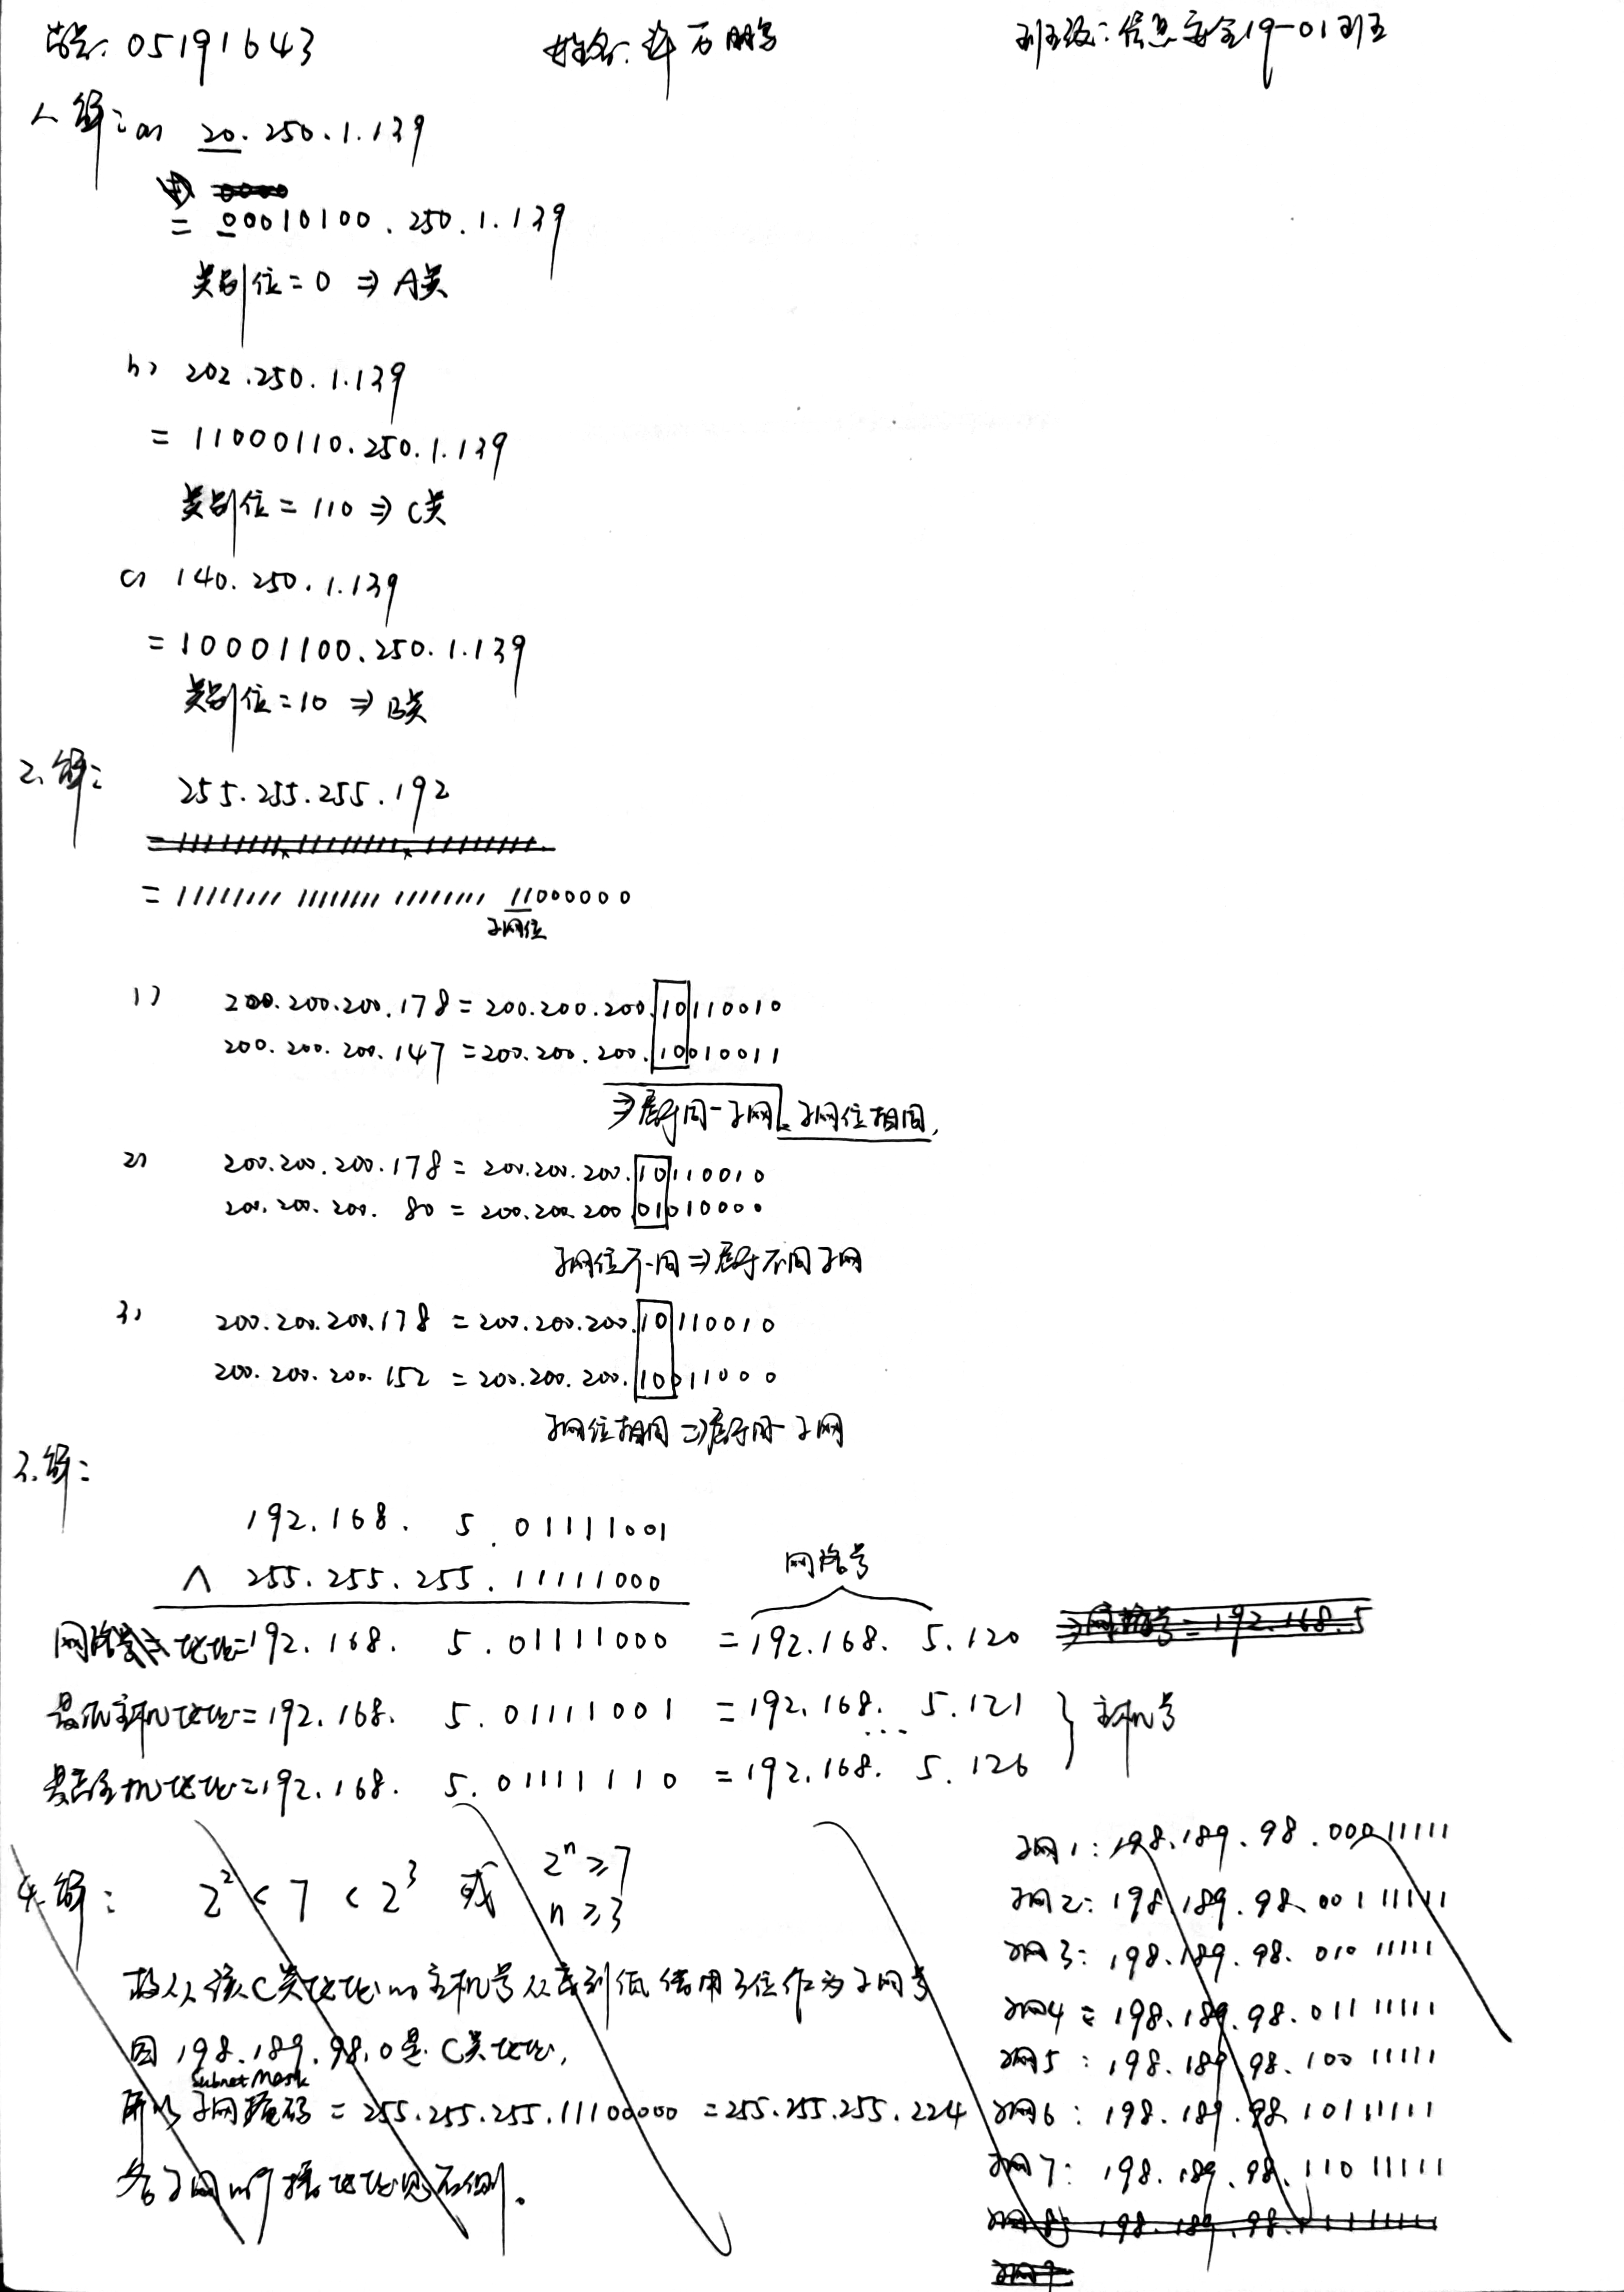 学号: 05191643 姓名: 许万鹏 班级: 信息安全19-01班
1. 解: a) 20.250.1.139
= 00010100.250.1.139
类别位=0 ⇒ A类
b) 202.250.1.139
= 11000110.250.1.139
类别位=110 ⇒ C类
c) 140.250.1.139
= 10001100.250.1.139
类别位=10 ⇒ B类
2. 解: 255.255.255.192
= 11111111 11111111 11111111 11000000
子网位
1) 200.200.200.178 = 200.200.200.10110010
200.200.200.147 = 200.200.200.10010011
⇒属于同一子网 子网位相同,
2) 200.200.200.178 = 200.200.200.10110010
200.200.200. 80 = 200.200.200.01010000
子网位不同 ⇒ 属于不同子网
3) 200.200.200.178 = 200.200.200.10110010
200.200.200.152 = 200.200.200.10011000
子网位相同 ⇒ 属于同一子网
3. 解:
192.168. 5.01111001
∧ 255.255.255.11111000
网络号
网络地址=192.168. 5.01111000 = 192.168. 5.120 ⇒网络号=192.168.5
最低主机地址=192.168. 5.01111001 = 192.168. 5.121
...
主机号
最高主机地址=192.168. 5.01111110 = 192.168. 5.126
4. 解: 2² < 7 < 2³ 或 2ⁿ ≥ 7
n ≥ 3
故从该C类地址的主机号从高到低借用3位作为子网号
因 198.189.98.0是C类地址,
Subnet Mask
所以子网掩码 = 255.255.255.11100000 = 255.255.255.224
各子网的广播地址见右侧.
子网1: 198.189.98.00011111
子网2: 198.189.98.00111111
子网3: 198.189.98.01011111
子网4: 198.189.98.01111111
子网5: 198.189.98.10011111
子网6: 198.189.98.10111111
子网7: 198.189.98.11011111
子网8: 198.189.98.11111111